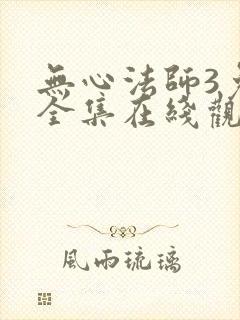 無心法師3
全集在綫觀
風雨琉璃